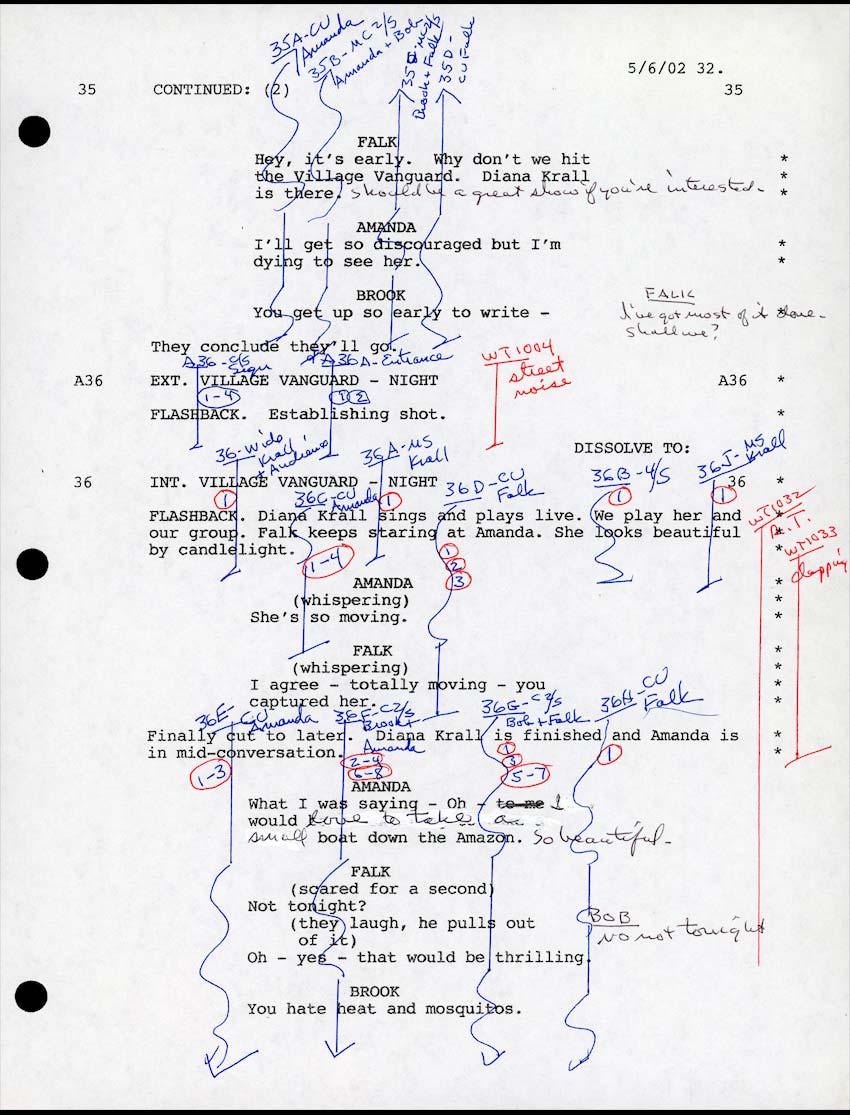 35A-CU
Amanda
35B-MC2/S
Amanda + Bob
Brook + Falk
35D-
CU Falk
5/6/02 32.
35 CONTINUED: (2) 35
FALK
Hey, it's early. Why don't we hit *
the Village Vanguard. Diana Krall *
is there. should be a great show if you're interested. *
AMANDA *
I'll get so discouraged but I'm *
dying to see her. *
BROOK *
You get up so early to write - *
FALK
I've got most of it done.
shall we?
They conclude they'll go.
A36-C/S
Sign
A36A-Entrance
WT1004
street
noise
A36 EXT. VILLAGE VANGUARD - NIGHT A36 *
1-4 1 2
FLASHBACK. Establishing shot. *
36-Wide
Krall
+ Audience
36A-MS
Krall
DISSOLVE TO:
36J-MS
Krall
36 INT. VILLAGE VANGUARD - NIGHT 36 *
36C-CU
Amanda
36D-CU
Falk
36B-4/S
1 1 1 1
WT1032
R.T.
WT1033
clapping
FLASHBACK. Diana Krall sings and plays live. We play her and *
our group. Falk keeps staring at Amanda. She looks beautiful *
by candlelight. *
1-4
1
2
3
AMANDA *
(whispering) *
She's so moving. *
FALK *
(whispering) *
I agree - totally moving - you *
captured her. *
36E-CU
Amanda
36F-C2/S
Brook +
Amanda
36G-C2/S
Bob + Falk
36H-CU
Falk
Finally cut to later. Diana Krall is finished and Amanda is *
in mid-conversation. *
1-3
2-4
6-8
1
3
5-7
1
AMANDA
What I was saying - Oh - to me I
would love to take a
small boat down the Amazon. So beautiful.
FALK
(scared for a second)
Not tonight?
(they laugh, he pulls out
of it)
BOB
No not tonight
Oh - yes - that would be thrilling.
BROOK
You hate heat and mosquitos.